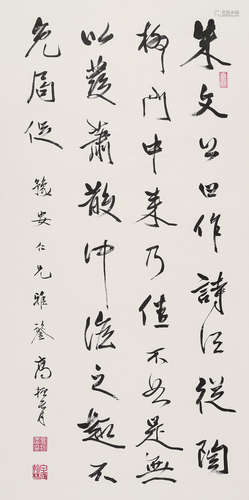 朱文公曰作詩須從陶
柳門中來乃佳不如是無
以發蕭散沖澹之趣不
免局促 安仁兄雅鑒 高振霄